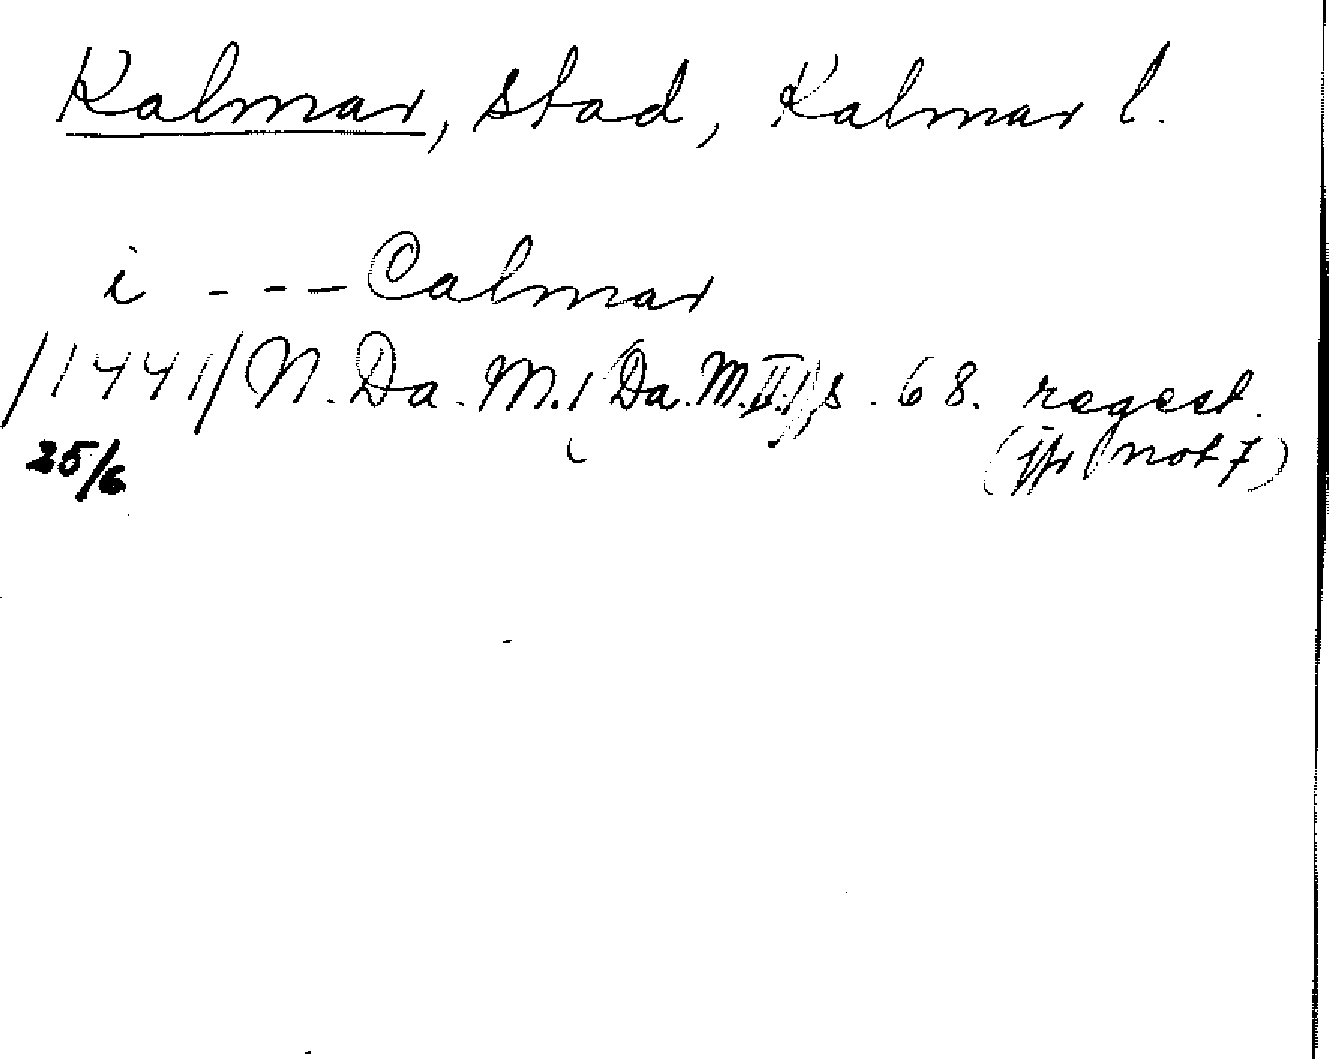 Kalmar, stad, Kalmar l.
i --- Calmar
/1441/ N. Da. M. (Da. M. II.), s. 68. regest.
25/6 (jfr not 7)